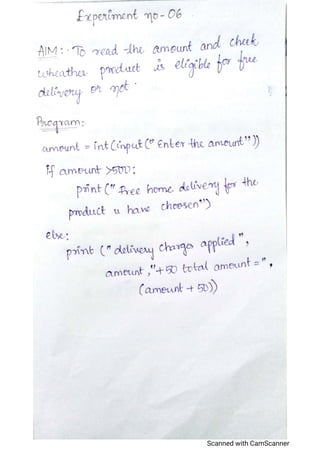 Experiment no-06.
AIM:- To read the amount and chek
wheather product is eligible for free
delivery or not.
Program:
amount = int(input("Enter the amount"))
if amount >500:
print("free home delivery for the
product u have choosen")
else:
print ("delivery charges applied",
amount,"+50 total amount=",
(amount + 50))
Scanned with CamScanner